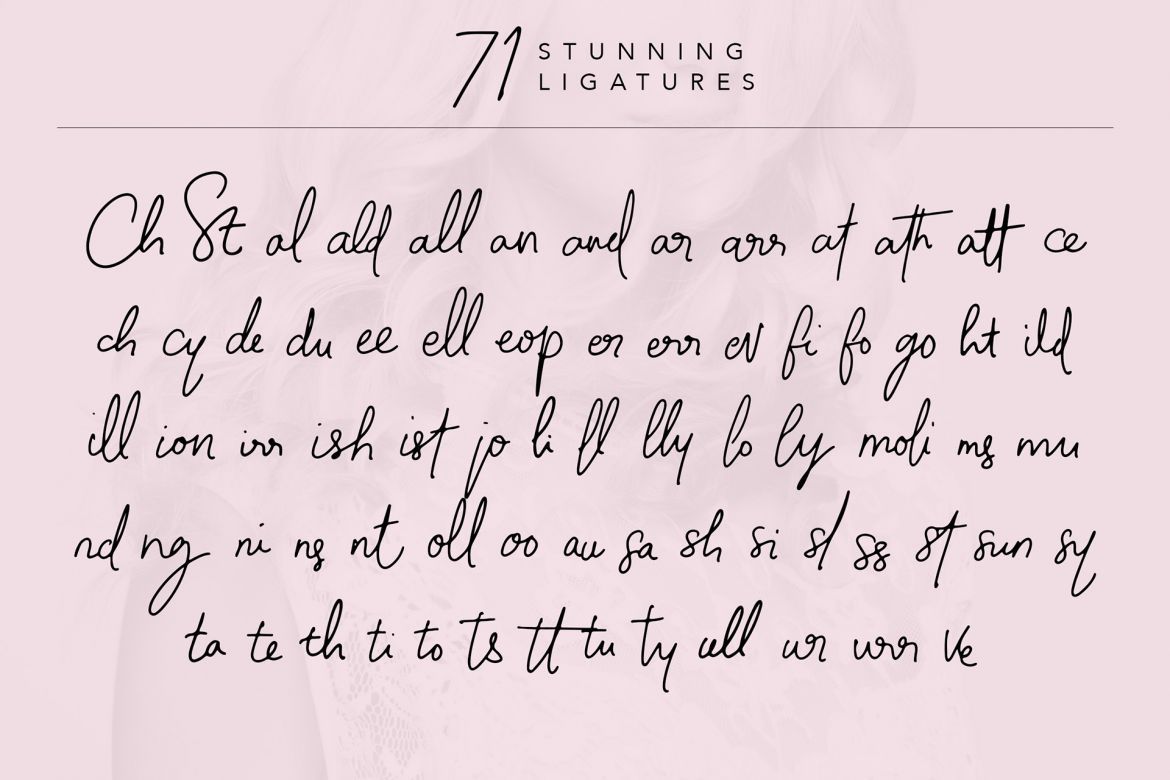 71 STUNNING
LIGATURES
Ch St al ald all an and ar arr at ath att ce
ch cy de du ee ell eop er err ev fi fo go ht ild
ill ion irr ish ist jo li fl lly lo ly moli ms mu
nd ng ni ns nt oll oo au sa sh si sl ss st sun sy
ta te th ti to ts tt tu ty ull ur urr ve